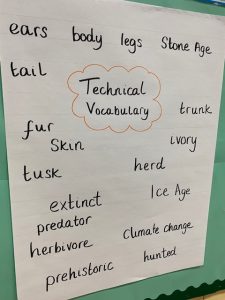 ears body legs Stone Age
tail
Technical
Vocabulary
trunk
fur
Skin
ivory
tusk
herd
extinct
Ice Age
predator
climate change
herbivore
hunted
prehistoric